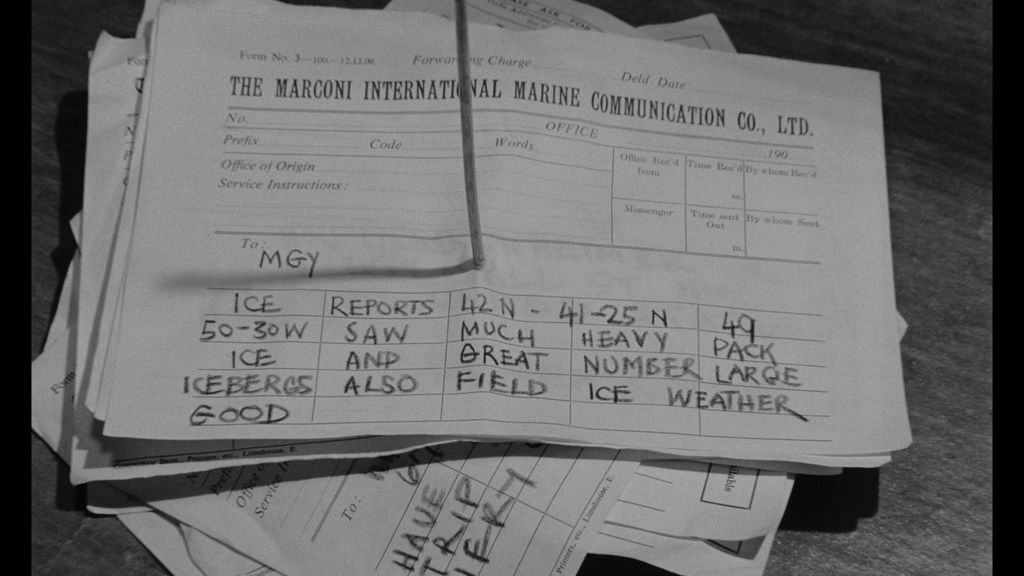 Form No. 3—100.—12.12.08. Forwarding Charge Deld. Date
THE MARCONI INTERNATIONAL MARINE COMMUNICATION CO., LTD.
No. OFFICE 190
Prefix Code Words
Office of Origin
Service Instructions:
Office Rec'd from Time Rec'd m. By whom Rec'd
Messenger Time sent Out m. By whom Sent
To:
MGY
ICE REPORTS 42 N - 41-25 N 49
50-30W SAW MUCH HEAVY PACK
ICE AND GREAT NUMBER LARGE
ICEBERGS ALSO FIELD ICE WEATHER
GOOD
Printers, etc., Limehouse, E.
To:
HAVE
TRIP
Printers, etc., Limehouse, E.